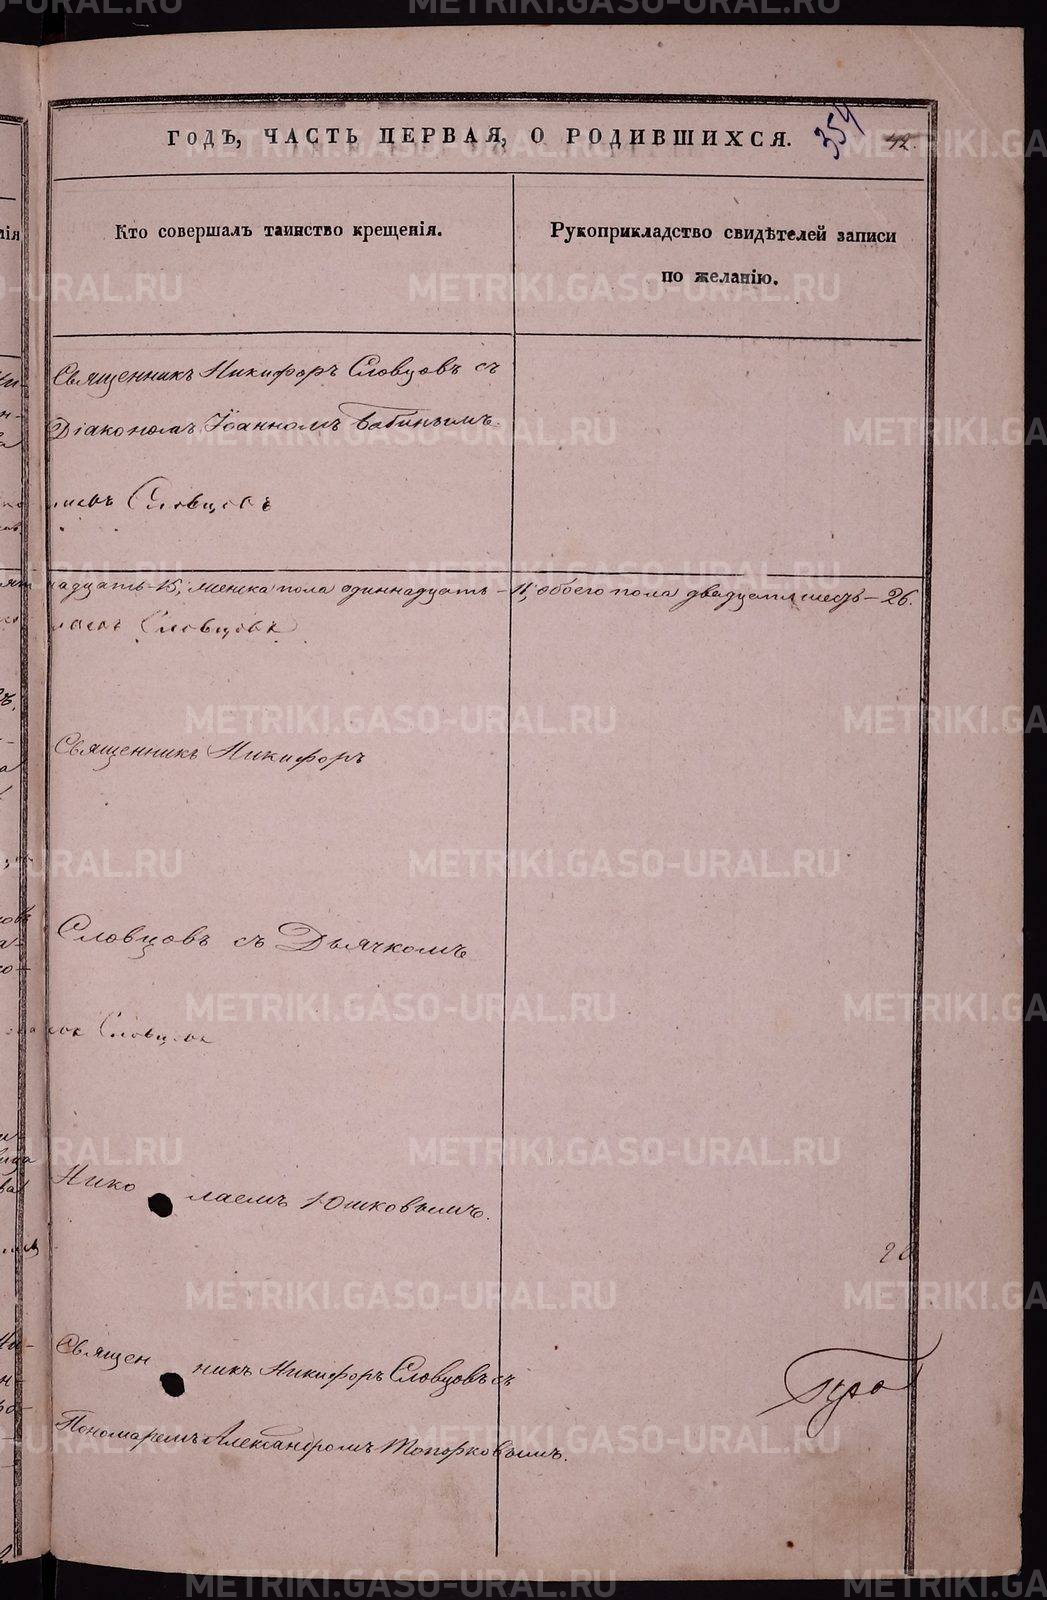 ГОДЪ, ЧАСТЬ ПЕРВАЯ, О РОДИВШИХСЯ.
354
42.
Кто совершалъ таинство крещенія.
Рукоприкладство свидѣтелей записи
по желанію.
Священникъ Никифоръ Словцовъ съ
Діакономъ Іоанномъ Бабинымъ.
Словцовъ
надцать-15, женска пола одиннадцать-11, обоего пола двадцать шесть-26.
Словцовъ
Священникъ Никифоръ
Словцовъ съ Дьячкомъ
Словцовъ
Николаемъ Юшковымъ.
Священникъ Никифоръ Словцовъ съ
Пономаремъ Александромъ Топорковымъ.
METRIKI.GASO-URAL.RU